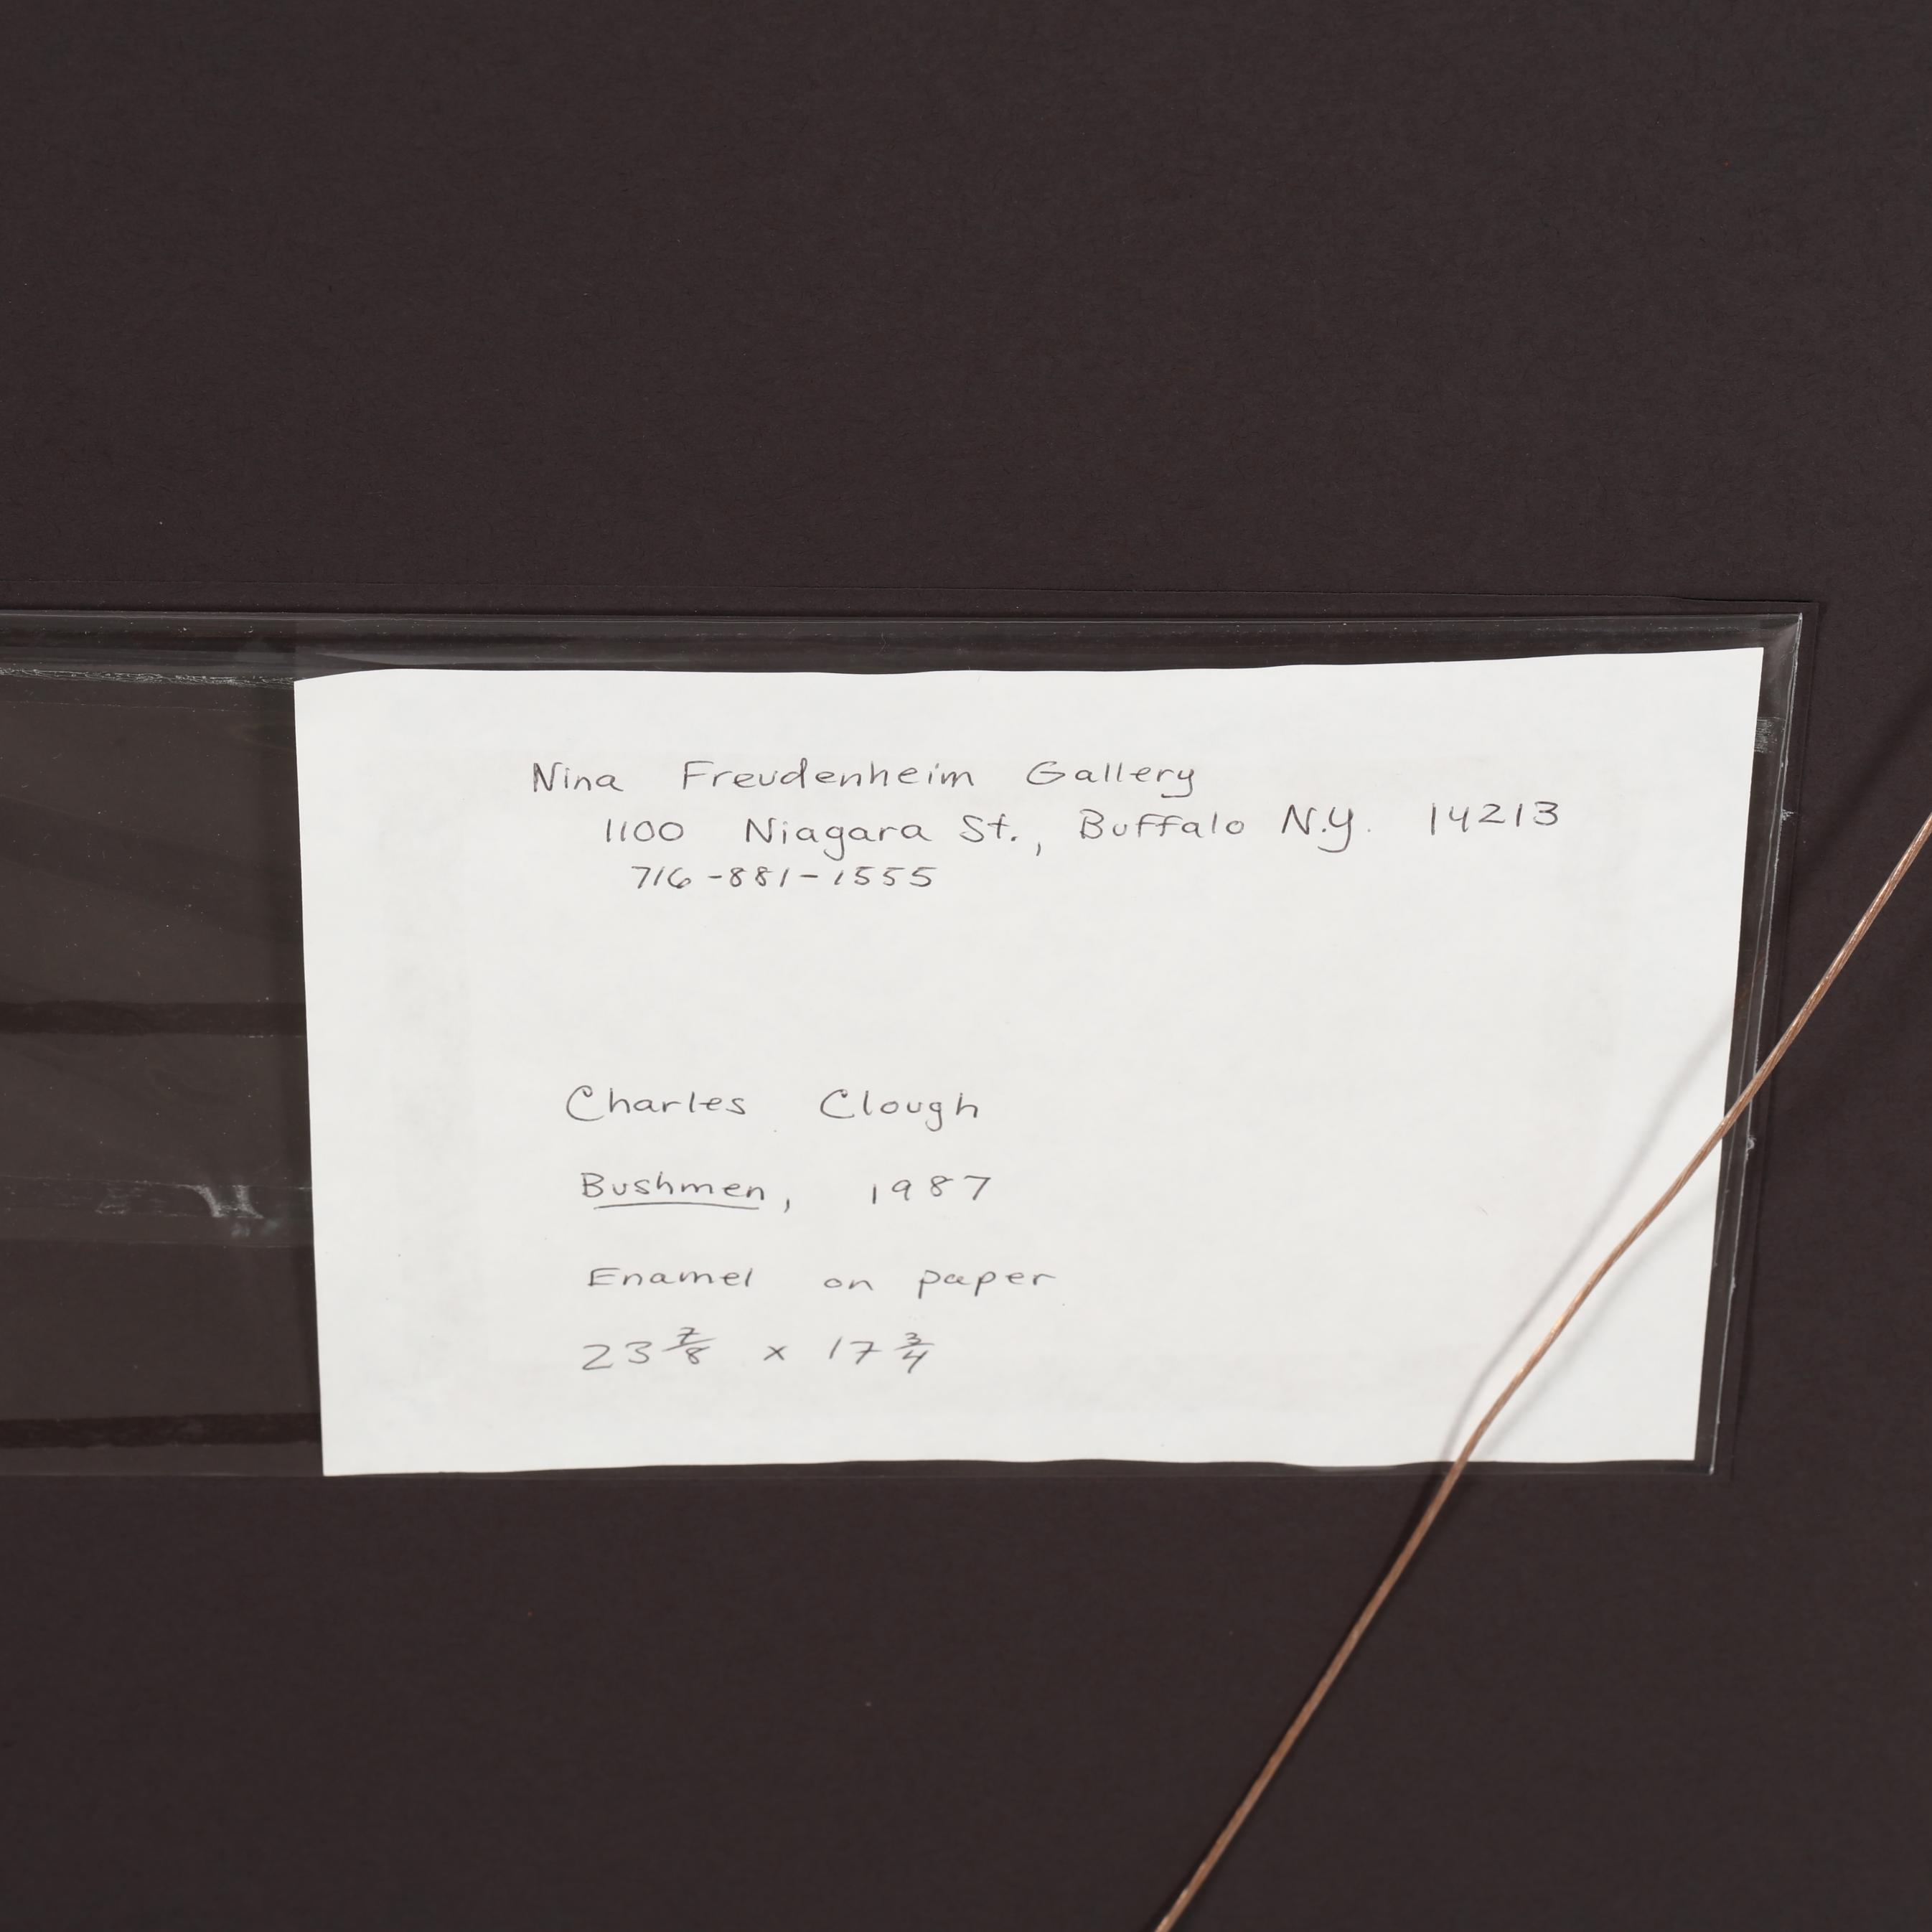 Nina Freudenheim Gallery
1100 Niagara St., Buffalo N.Y. 14213
716-881-1555
Charles Clough
Bushmen, 1987
Enamel on paper
23 7/8 x 17 3/4